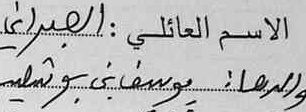 الاسم العائلي : الصبراني
والدها : يوسف بن بوشليه